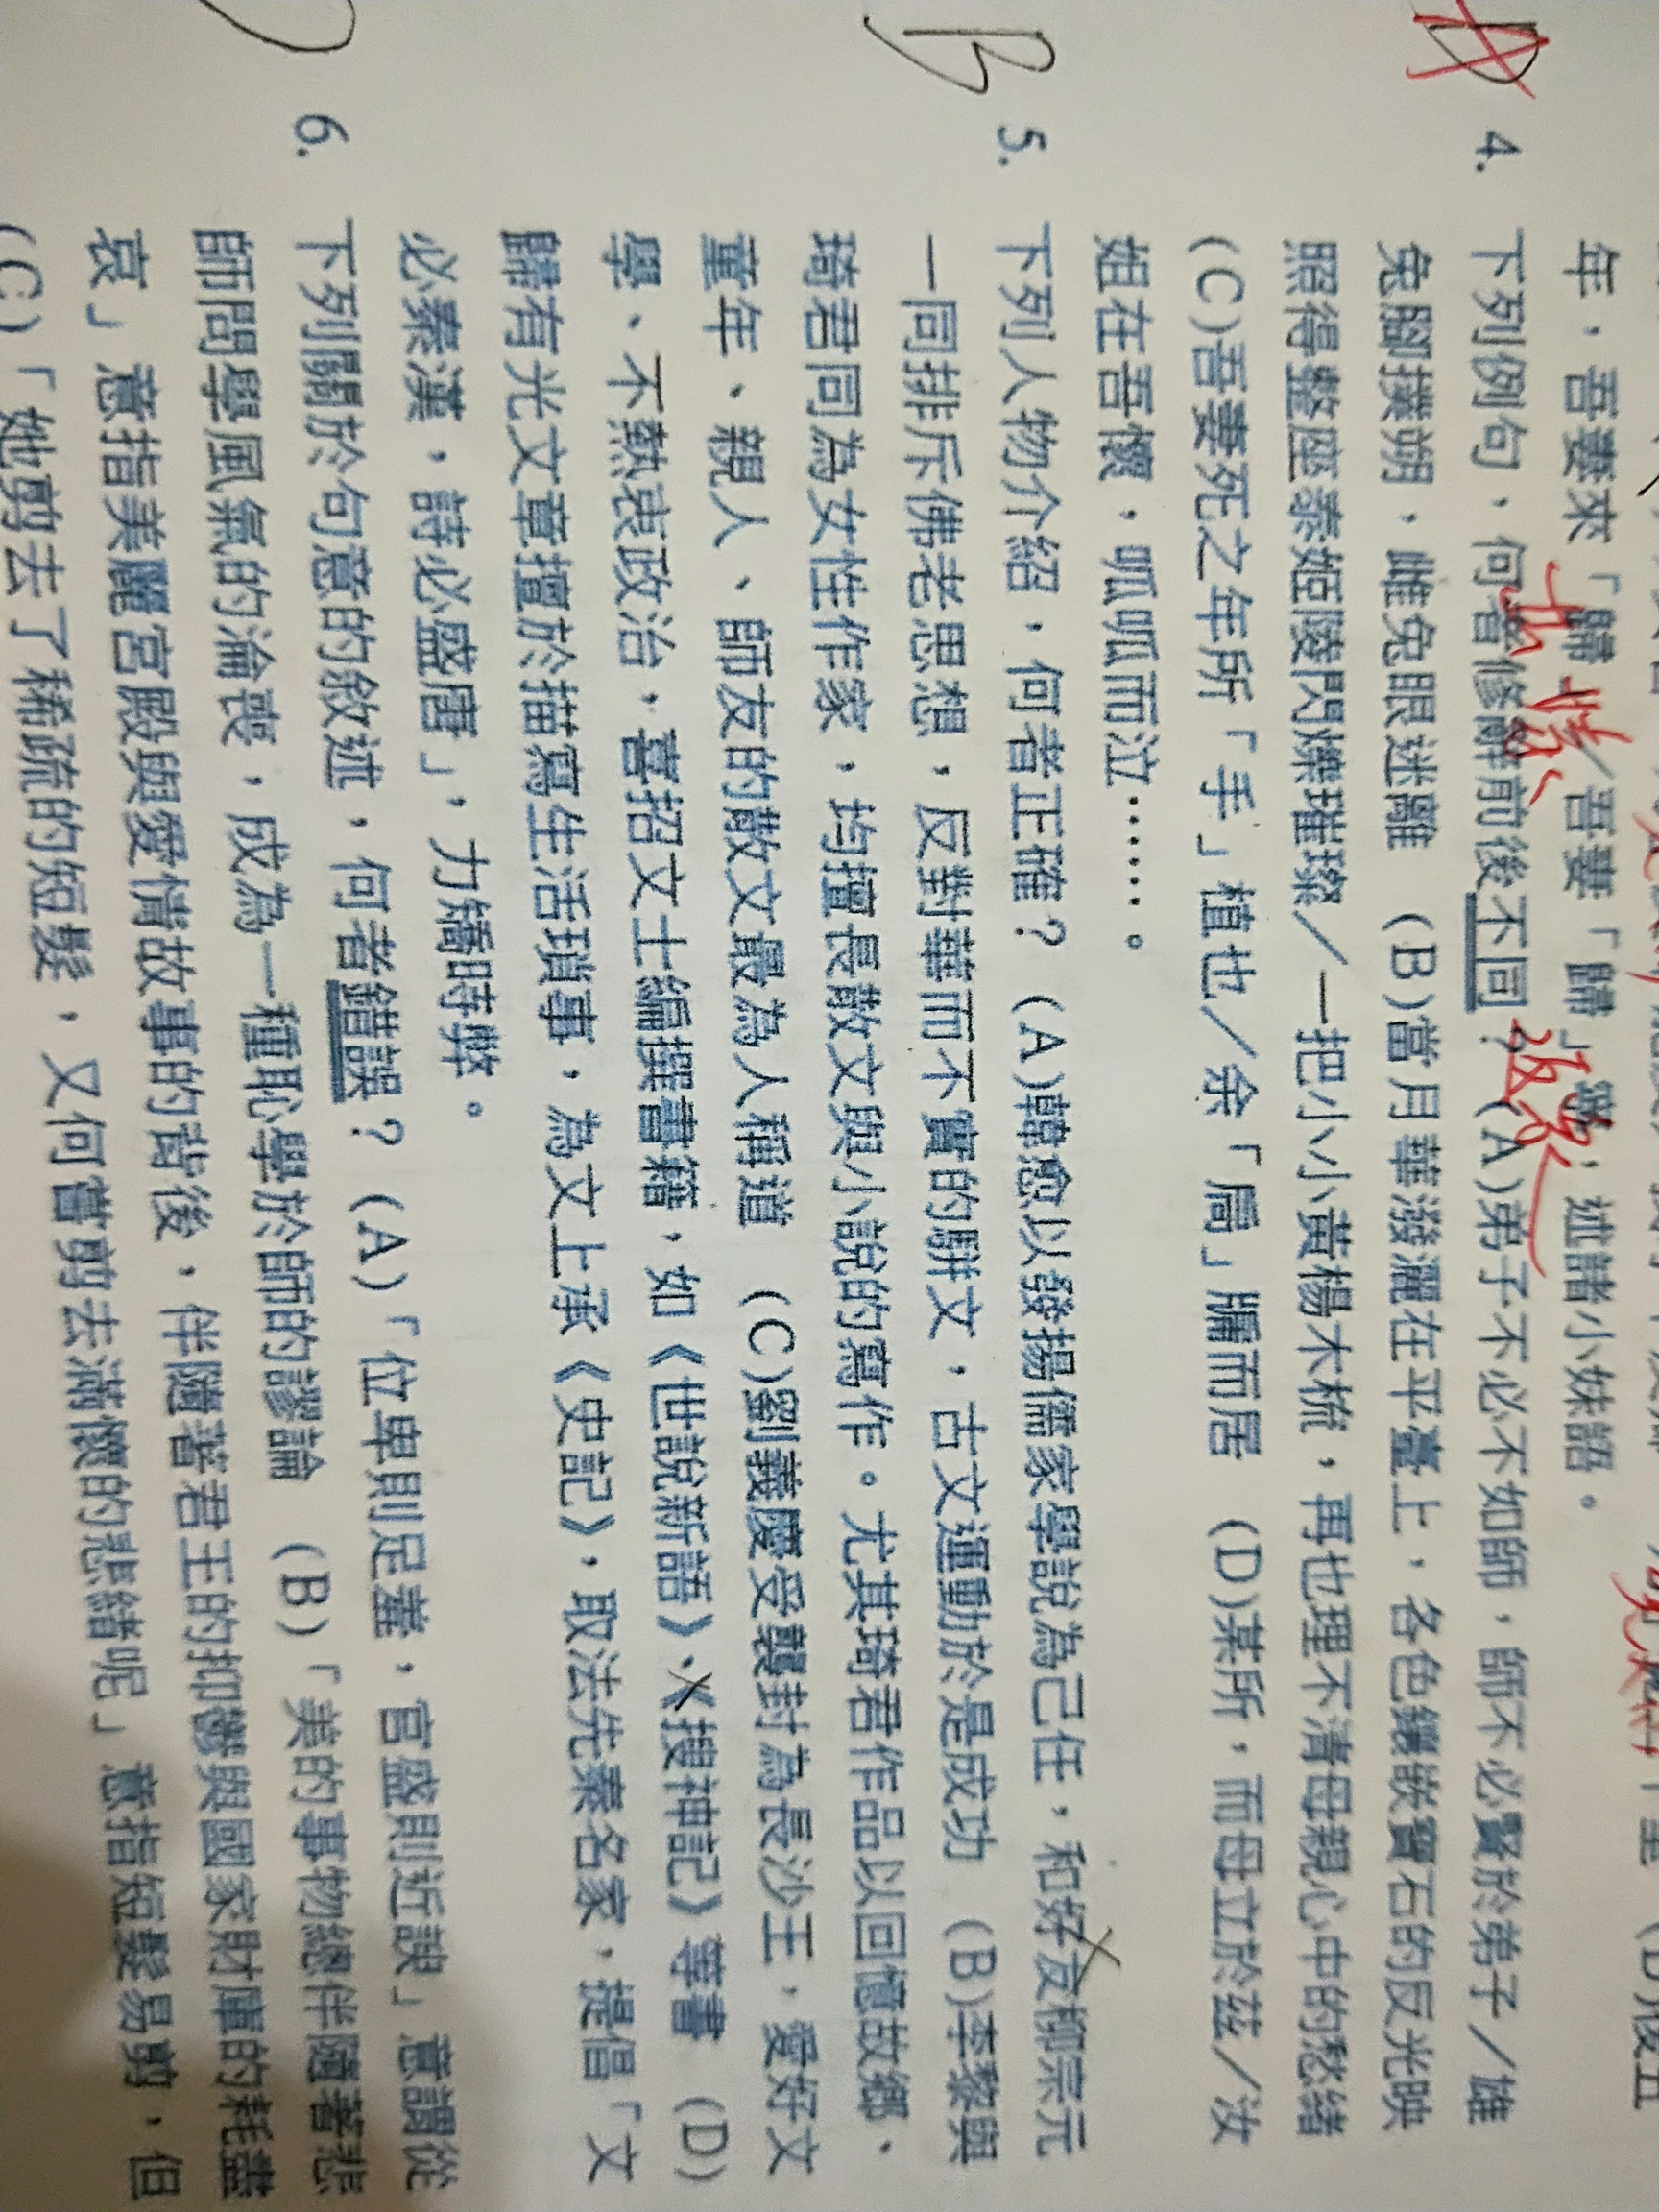 年,吾妻來「歸」/吾妻「歸」寧,述諸小妹語。
4. 下列例句,何者修辭前後不同?(A)弟子不必不如師,師不必賢於弟子/雄
兔腳撲朔,雌兔眼迷離 (B)當月華潑灑在平臺上,各色鑲嵌寶石的反光映
照得整座泰姬陵閃爍璀璨/一把小小黃楊木梳,再也理不清母親心中的愁緒
(C)吾妻死之年所「手」植也/余「扃」牖而居 (D)某所,而母立於茲/汝
姐在吾懷,呱呱而泣……。
B 5. 下列人物介紹,何者正確?(A)韓愈以發揚儒家學說為己任,和好友柳宗元
一同排斥佛老思想,反對華而不實的駢文,古文運動於是成功 (B)李黎與
琦君同為女性作家,均擅長散文與小說的寫作。尤其琦君作品以回憶故鄉、
童年、親人、師友的散文最為人稱道 (C)劉義慶受襲封為長沙王,愛好文
學、不熱衷政治,喜招文士編撰書籍,如《世說新語》、《搜神記》等書 (D)
歸有光文章擅於描寫生活瑣事,為文上承《史記》,取法先秦名家,提倡「文
必秦漢,詩必盛唐」,力矯時弊。
6. 下列關於句意的敘述,何者錯誤?(A)「位卑則足羞,官盛則近諛」意謂從
師問學風氣的淪喪,成為一種恥學於師的謬論 (B)「美的事物總伴隨著悲
哀」意指美麗宮殿與愛情故事的背後,伴隨著君王的抑鬱與國家財庫的耗盡
(C)「她剪去了稀疏的短髮,又何嘗剪去滿懷的悲緒呢」意指短髮易剪,但